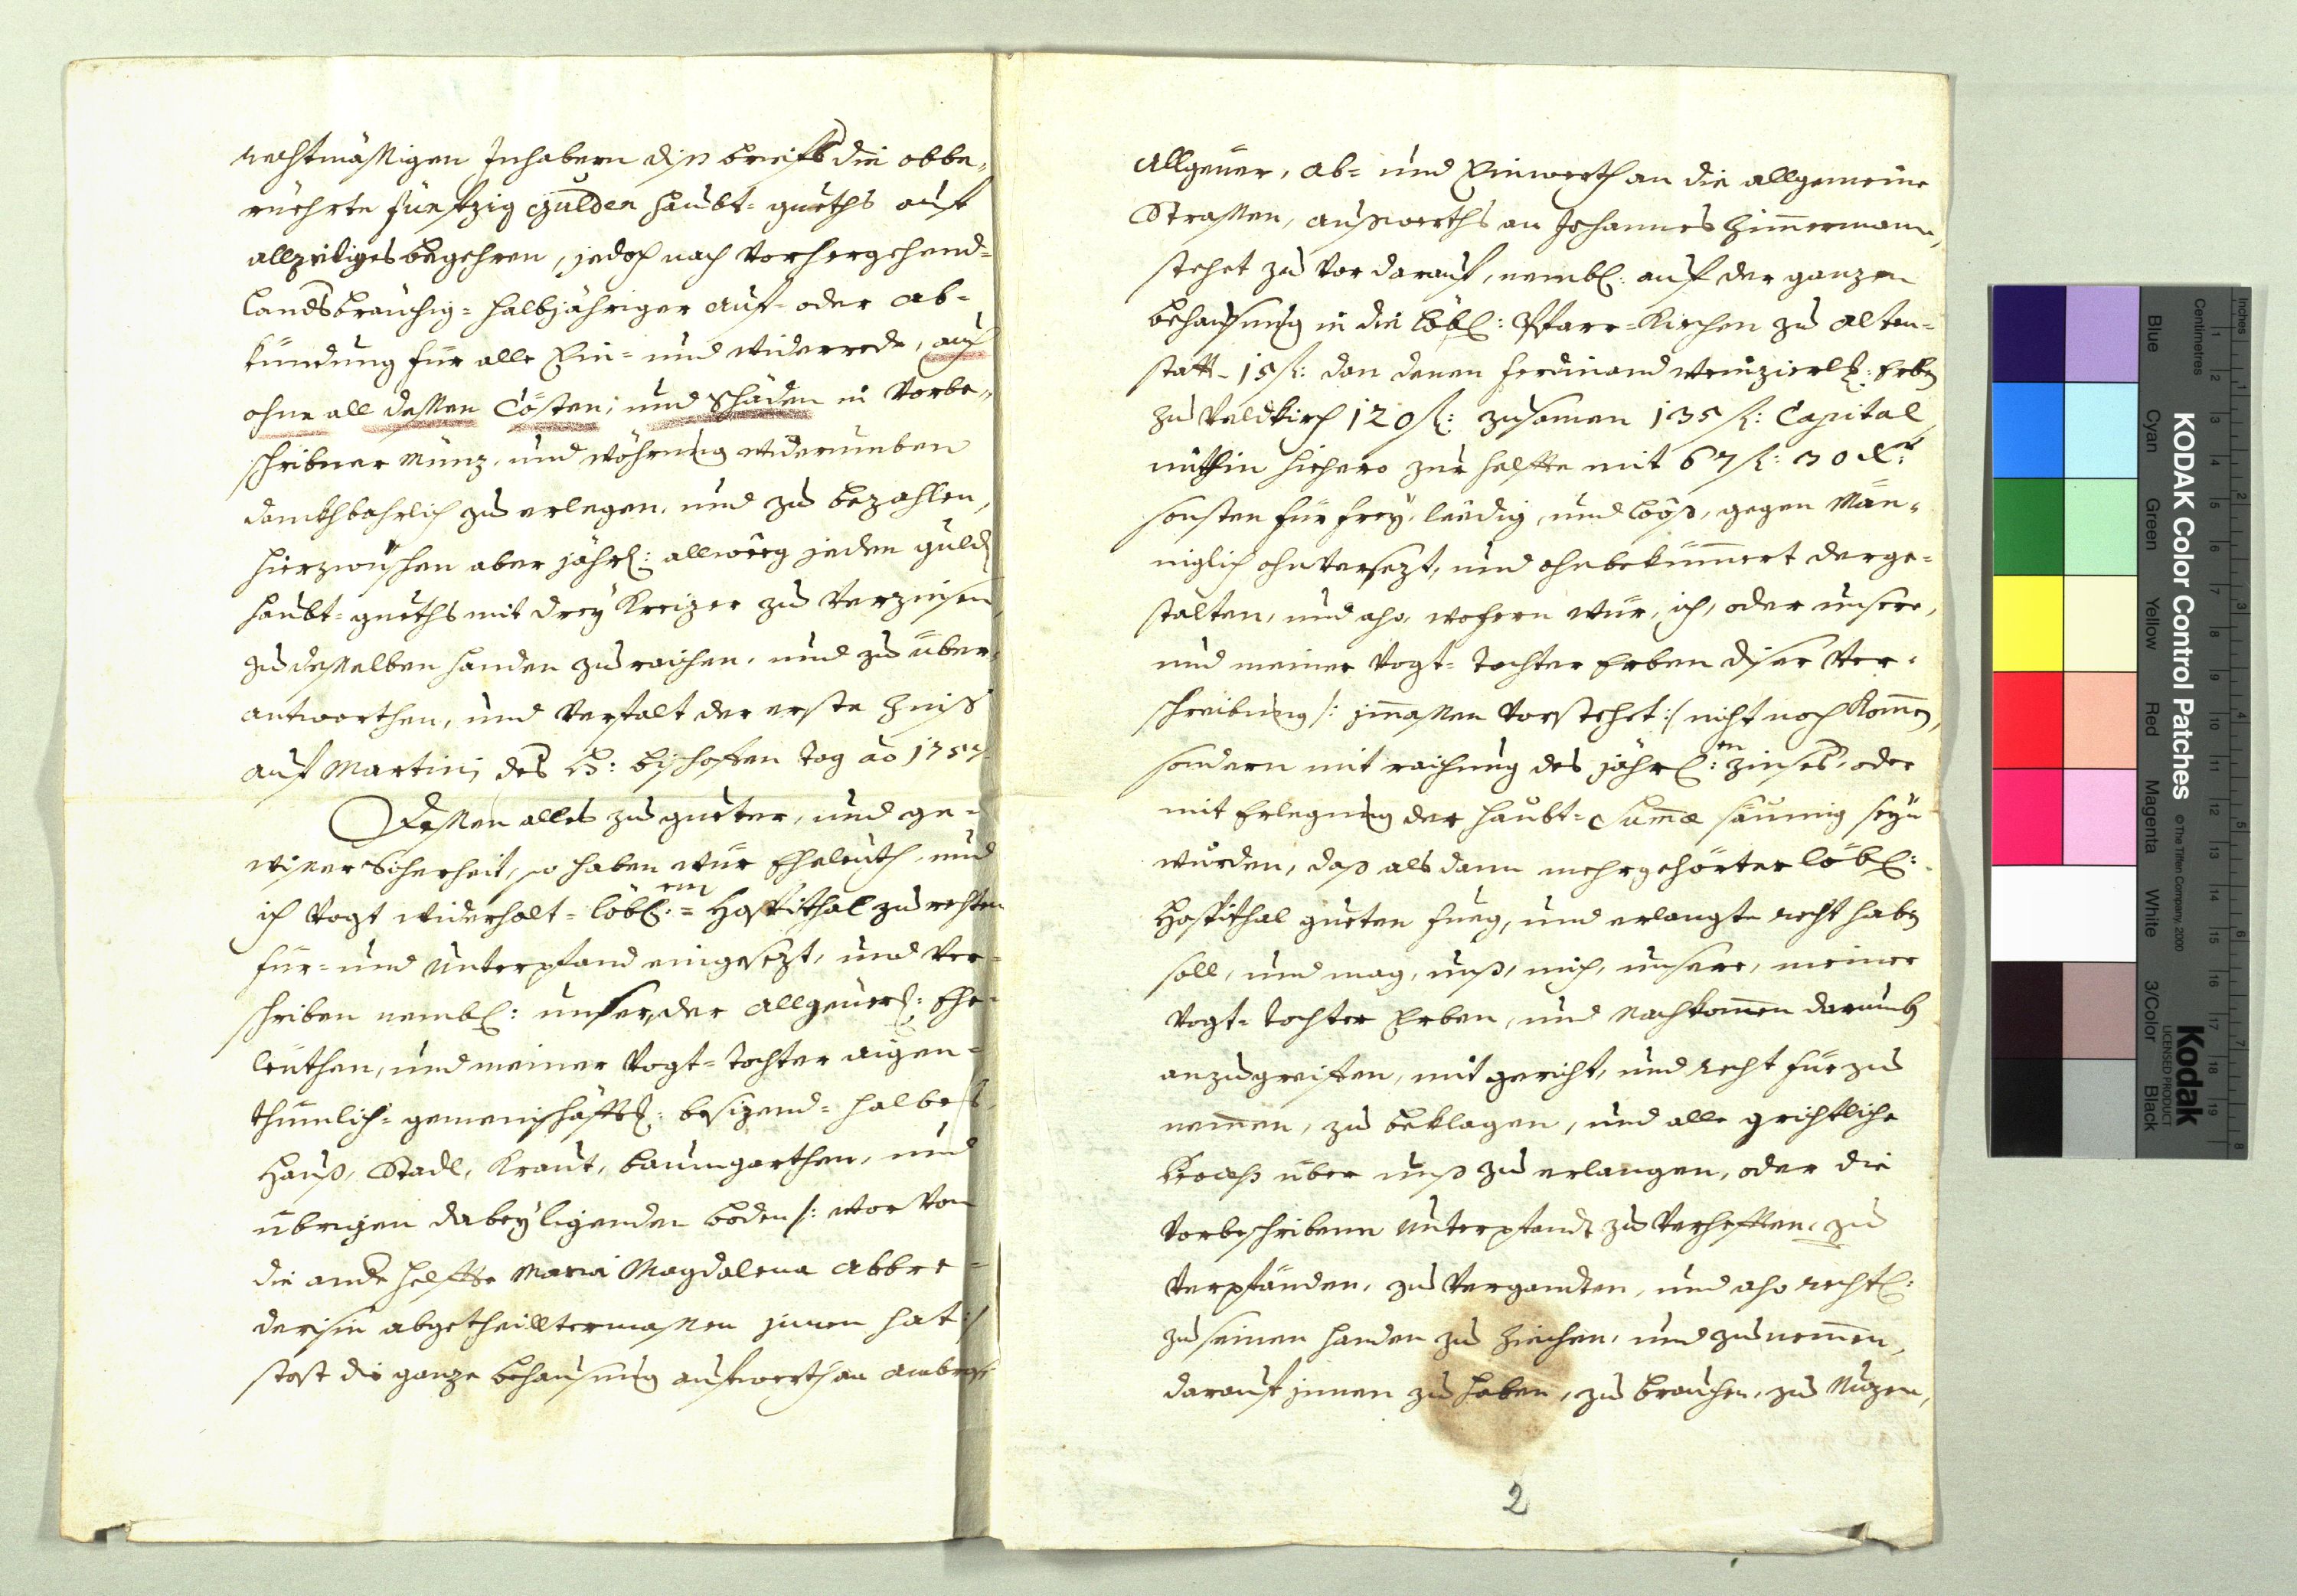 rechtmässigen Inhabern diß briefs die obbe„
rüehrte fünfzig Gulden haubt=gueths auf
allzeitiges begehren, jedoch nach vorhergehend=
landsbräuchig=halbjähriger auf= oder ab=
kündung für alle Ein= und widerrede, auch
ohne all dessen Cösten, und schäden in vorbe„
schribner Münz, und wöhrung widerumben
danckhbahrlich zu erlegen, und zu bezahlen,
hierzwischen aber jährl: allweeg jeden guld
haubt=gueths mit drey Kreizer zu verzinsen,
zu desselben handen zu raichen, und zu über„
antworthen, und verfalt der erste Zinß
auf Martinj des H: bischoffen tag ao 1757
Dessen alles zu gueter, und ge=
wisser Sicherheit, so haben wür Eheleuth, und
ich Vogt widerholt=löbl:em=Hospithal zu rechten
für=und unterpfand eingesezt, und ver=
schriben nembl: unser, der Allgeuerl: Ehe=
leuthen, und meiner Vogt=tochter aigen=
thumlich=gemeinschäfftl: besizend=halbes
Hauß, Stadl, Kraut, baumgarthen, und
übrigen dabey ligenden boden /: wor von
die ande helffte Maria Magdalena Abbre=
derisin abgetheilltermassen jnnen hat :/
stost die ganze behausung aufwerth an Ambrosi
Allgeuer, ab= und Einwerth an die allgemeine
Strassen, außwerths an Johannes Zimmermann,
stehet zu vor darauf, nembl: auf der ganzen
behausung in die löbl: Pfarr=Kirchen zu Alten=
statt 15 fl: dan denen Ferdinand Weinzierl: Erben
zu Veldkirch 120 fl: zusamen 135 fl: Capital
mithin hiehero zur helffte mit 67 fl: 30 xr:
sonsten für frey, leedig, und looß, gegen Män„
niglich ohnversezt, und ohnbekümmert derge=
stalten, und also, wofern wür, ich, oder unsere,
und meiner Vogt=tochter Erben diser ver=
schreibung /: jnmassen vorstehet :/ nicht nach komen,
sondern mit raichung des jährl:en zinses, oder
mit Erlegung der haubt=Summa säumig seyn
wurden, daß als dann mehrgehörter löbl:
Hospithal gueten fueg, und erlangte recht haben
soll, und mag, unß, mich, unsere, meiner
Vogt=tochter Erben, und Nachkommen darumb
anzugreiffen, mit gericht, und recht fürzu
nemmen, zu beklagen, und alle grichtliche
Proceß über unß zu erlangen, oder die
vorbeschribene unterpfandt zu verhefften, zu
verpfänden, zu verganthen, und also rechtl:
zu seinen handen zu ziechen, und zu nemmen,
darauf jnnen zu haben, zu brauchen, zu Nuzen,
2
KODAK Color Control Patches
© The Tiffen Company, 2000
Kodak
LICENSED PRODUCT
Inches
Centimetres
1 2 3 4 5 6 7 8
1 2 3 4 5 6 7 8 9 10 11 12 13 14 15 16 17 18 19
Blue Cyan Green Yellow Red Magenta White 3/Color Black